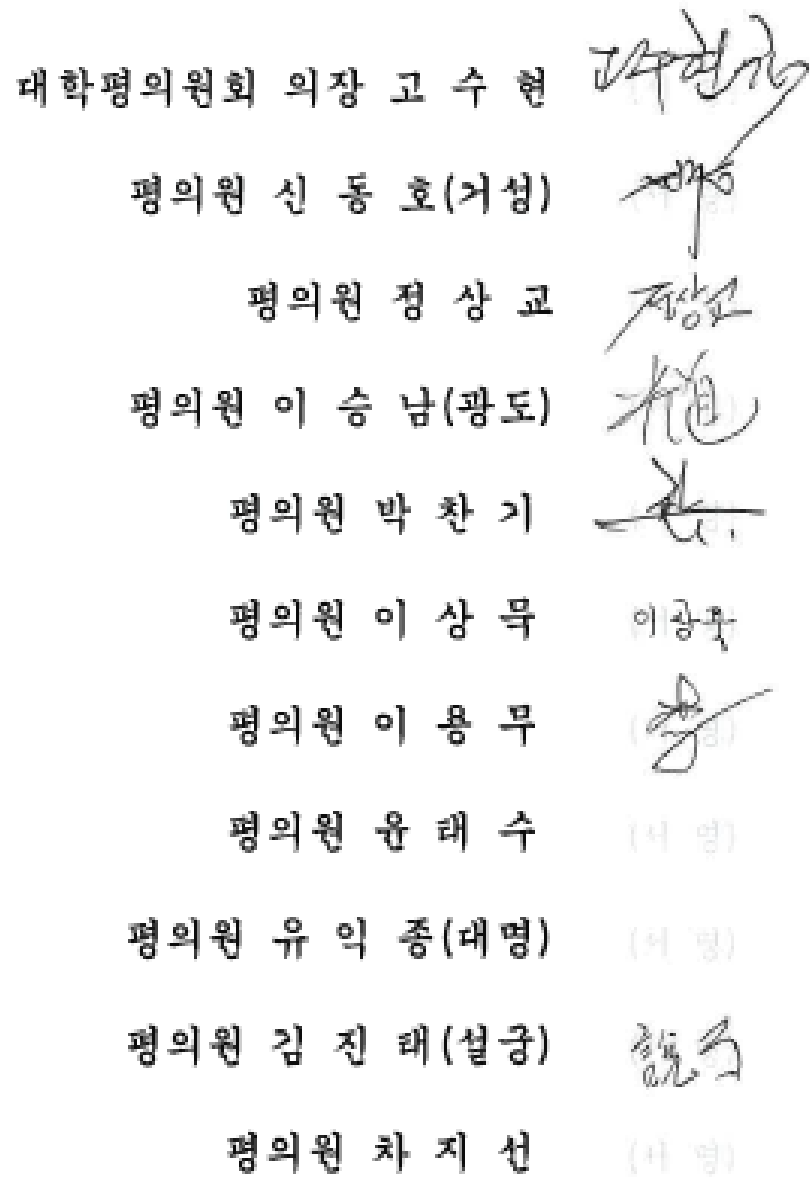 대학평의원회 의장 고 수 현
평의원 신 동 호(거성)
평의원 정 상 교 정상교
평의원 이 승 남(광도)
평의원 박 찬 기
평의원 이 상 묵 이상묵
평의원 이 용 무
평의원 윤 태 수 (서 명)
평의원 유 익 종(대명) (서 명)
평의원 김 진 태(설궁)
평의원 차 지 선 (서 명)